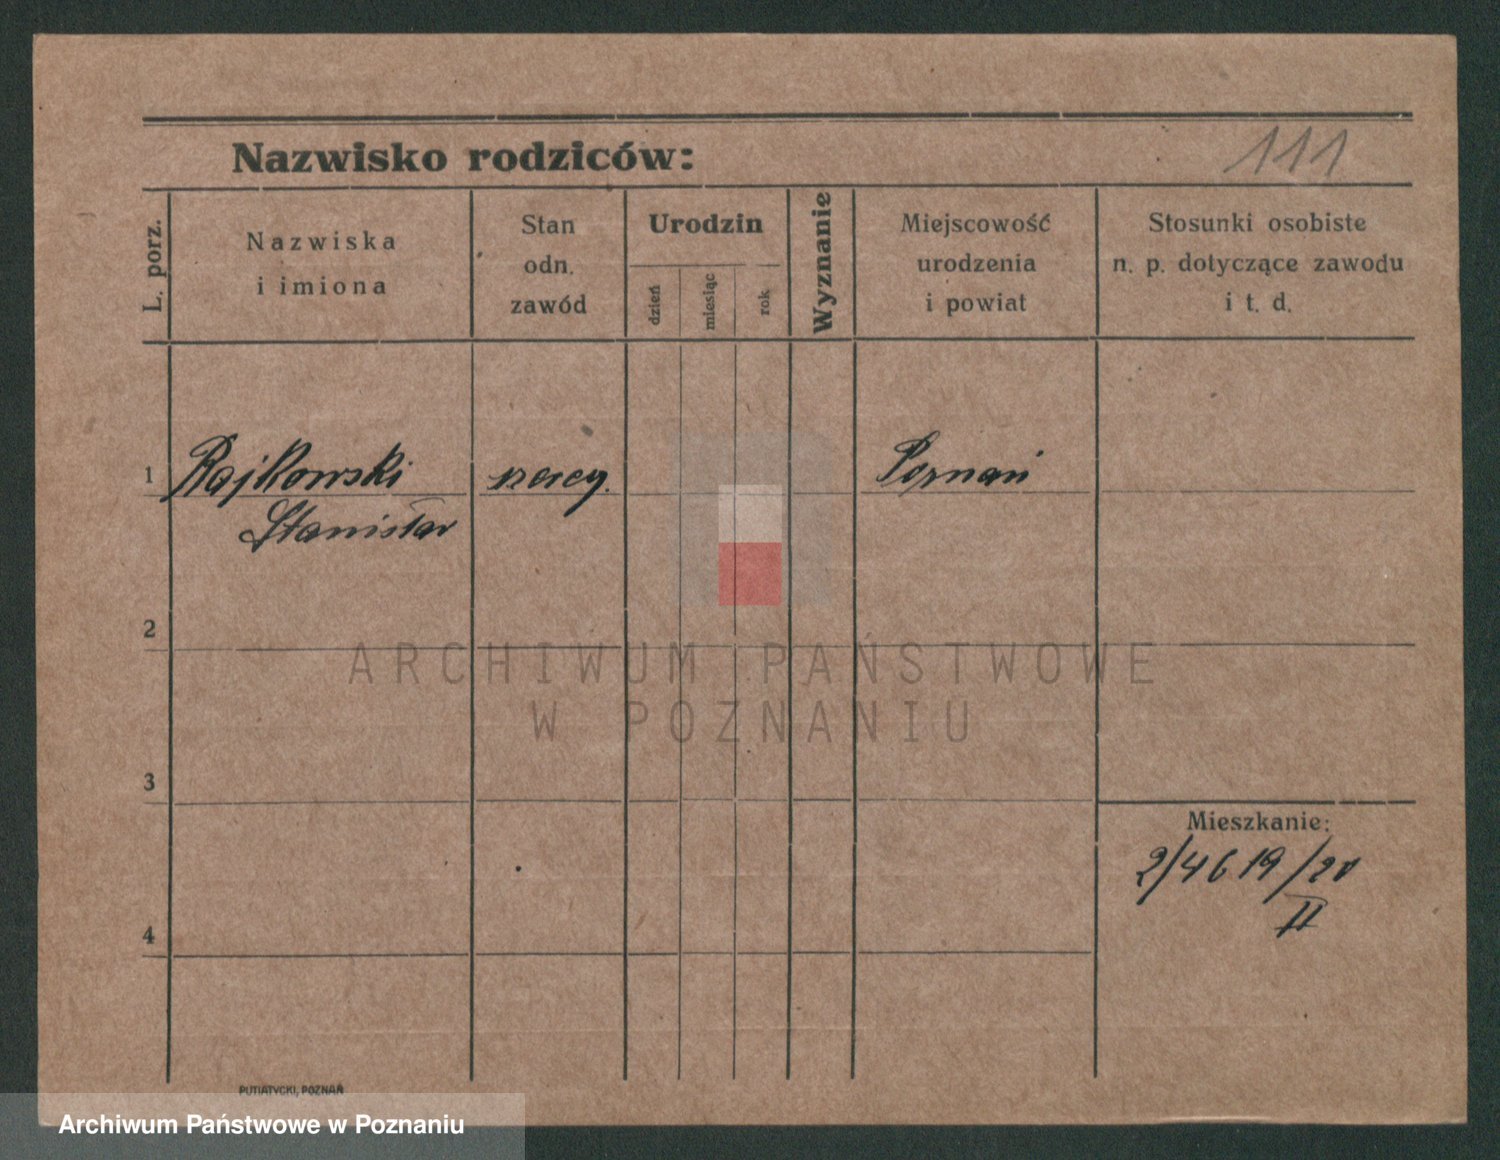 Nazwisko rodziców:
111
L. porz.
Nazwiska
i imiona
Stan
odn.
zawód
Urodzin
dzień
miesiąc
rok
Wyznanie
Miejscowość
urodzenia
i powiat
Stosunki osobiste
n. p. dotyczące zawodu
i t. d.
1
Rajkowski
Stanisław
Poznań
2
ARCHIWUM PAŃSTWOWE
W POZNANIU
3
Mieszkanie:
2/4619/20
II
4
PUTIATYCKI, POZNAŃ
Archiwum Państwowe w Poznaniu